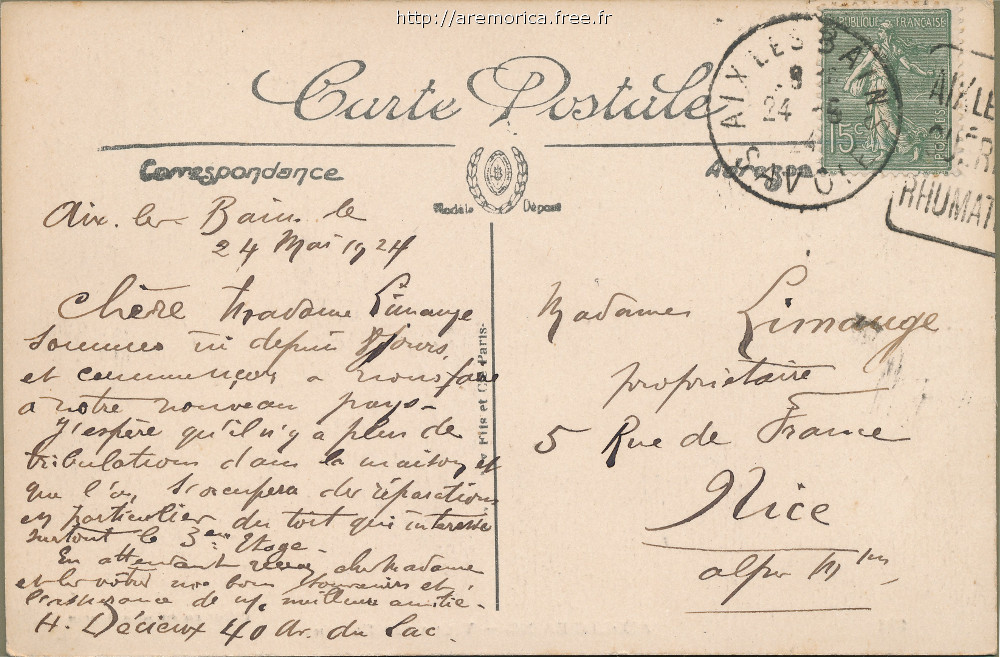 http://aremorica.free.fr
RÉPUBLIQUE FRANÇAISE
15c POSTES
AIX LES BAINS
24 - 5
SAVOIE
AIX LE
GUÉRI
RHUMAT
Carte Postale
Correspondance
Adresse
Modèle Déposé
Fils et Cie Paris-
Aix-les-Bains le
24 Mai 1924
Chère Madame Limange
Sommes ici depuis 8 jours,
et commençons a nous faire
a notre nouveau pays-
J'espère qu'il n'y a plus de
tribulations dans la maison et
que l'on s'occupera des réparations
en particulier du toit qui interesse
surtout le 3em Etage-
En attendant chère Madame
et les votres nos bons souvenirs et
l'assurance de meilleure amitié-
H. Décieux 40 Av. du Lac.
Madame Limange
propriétaire
5 Rue de France
Nice
alpes Mmes